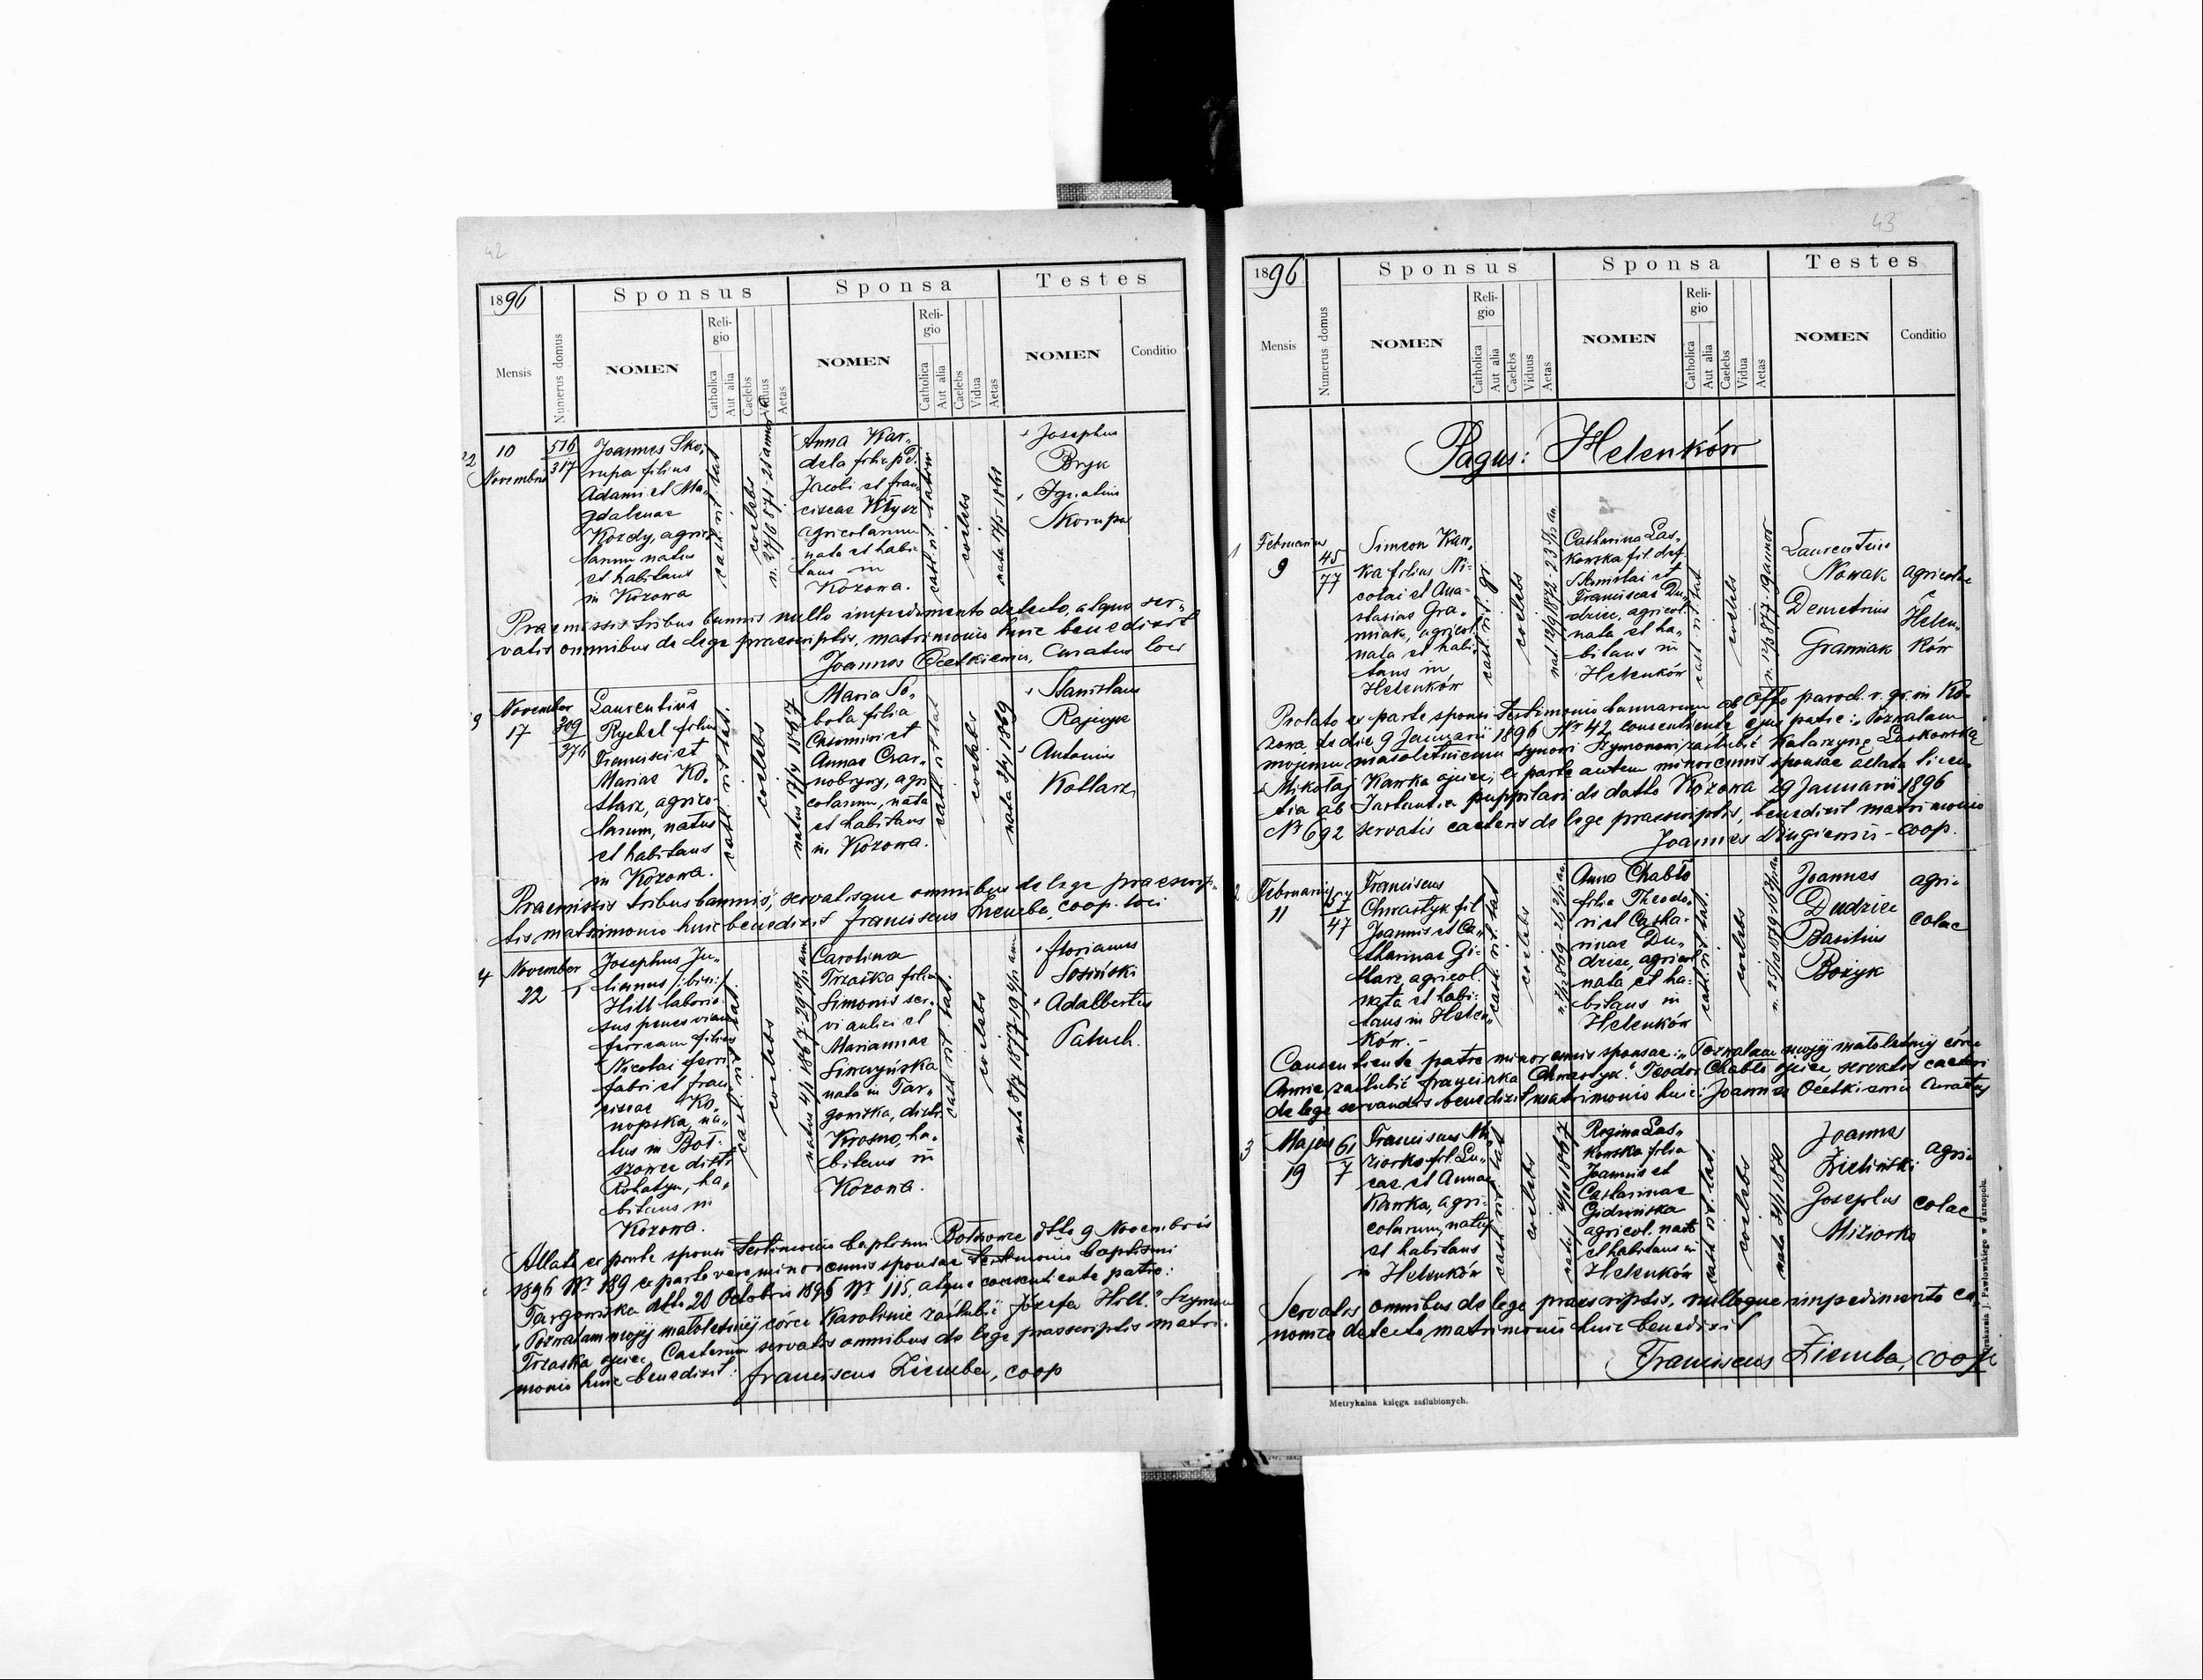 42
1896
Sponsus
Sponsa
Testes
Mensis
Numerus domus
NOMEN
Religio
Catholica
Aut alia
Caelebs
Viduus
Aetas
NOMEN
Religio
Catholica
Aut alia
Caelebs
Vidua
Aetas
NOMEN
Conditio
10
Novembris
516
317
Joannes Sko-
rupa filius
Adami et Ma-
gdalenae
Kozdy, agrico-
larum natus
et habitans
in Kozowa
cath. rit. lat
coelebs
Anna Kar-
dela filia
Jacobi et Fran-
ciscae Kłysz
agricolarum
nata et habi-
tans in
Kozowa.
cath. rit. latin
coelebs
Josephus
Bryk
Ignatius
Skorupa
Praemissis tribus bannis nullo impedimento detecto, atque ser-
vatis omnibus de lege praescriptis, matrimonio huic benedixit
Joannes Ocetkiewicz, Curatus loci
3
November
17
309
376
Laurentius
Rychel filius
Francisci et
Mariae Ko-
tlarz, agrico-
larum, natus
et habitans
in Kozowa.
cath. rit. lat.
coelebs
natus 17/7 1867
Maria So-
bota filia
Casimiri et
Annae Czar-
nobrywy, agri
colarum, nata
et habitans
in Kozowa.
cath. rit lat
coelebs
Stanislaus
Rajczyk
Antonius
Kotlarz
Praemissis tribus bannis, servatisque omnibus de lege praescrip-
tis matrimonio huic benedixit Franciscus Ziemba, coop. loci
4
November
22
Josephus Ju-
lianus /:bin:/
Hill laborio-
sus penes viam
ferream filius
Nicolai ferri
fabri et Fran
ciscae Ko-
nopska, na-
tus in Boł-
szowce distr.
Rohatyn, ha-
bitans in
Kozowa.
cath. rit lat.
coelebs
Carolina
Trzaska filia
Simonis ser-
vi aulici et
Mariannae
nata in Tar-
gowiska, distr.
Krosno, ha-
bitans in
Kozowa.
cath rit. lat.
coelebs
Florianus
Sosiński
Adalbertus
Patuch.
Allato ex parte sponsi testimonio baptismi Bołszowce ddto 9 Novembris
1896 Nr 189 ex parte vero minorennis sponsae testimonio baptismi
Targowiska ddto 20 Octobris 1896 Nr 115, atque consentiente patre:
"Pozwalam mojej małoletniej córce Karolinie zaślubić Józefa Hill." Szymon
Trzaska ojciec. Caeterum servatis omnibus de lege praescriptis matri-
monio huic benedixit: Franciscus Ziemba, coop
43
1896
Sponsus
Sponsa
Testes
Mensis
Numerus domus
NOMEN
Religio
Catholica
Aut alia
Caelebs
Viduus
Aetas
NOMEN
Religio
Catholica
Aut alia
Caelebs
Vidua
Aetas
NOMEN
Conditio
Pagus: Helenków
1
Februarius
9
45
77
Simeon Kaw-
ka filius Ni-
colai et Ana-
stasiae Gra-
miak, agricol.
nata et habi
tans in
Helenków
cath. rit. gr.
coelebs
Catharina Las-
kowska fil. def.
Stanislai et
Franciscae Du-
dzic, agricol.
nata et ha-
bitans in
Helenków
cath rit. lat
coelebs
Laurentius
Nowak
Demetrius
Gramiak
agricolae
Helen-
ków
Prolato ex parte sponsi testimonio bannorum ab Offo paroch. r. gr. in Ko-
zowa de die 9 Januarii 1896 Nr 42, consentiente ejus patre: "Pozwalam
mojemu małoletniemu synowi Szymonowi zaślubić Katarzynę Laskowską
Mikołaj Kawka ojciec; ex parte autem minorennis sponsae allata licen-
tia ab Instantia puppilari de datto Kozowa 29 Januarii 1896
Nr 692 servatis caeteris de lege praescriptis, benedixit matrimonio
Joannes Długiewicz - coop.
2
Februarius
11
157
47
Franciscus
Chwastyk fil
Joannis et Ca-
tharinae Gi-
tlarz agricol.
nata et habi-
tans in Helen-
ków. -
cath. rit. lat
coelebs
Anna Chabło
filia Theodo-
ri et Catha-
rinae Du-
dzic, agricol
nata et ha-
bitans in
Helenków
cath. rit. lat.
coelebs
Joannes
Dudzic
Basilius
Bożyk
agri-
colae
Consentiente patre minorennis sponsae: "Pozwalam mojej małoletniej córce
Annie zaślubić Franciszka Chwastyk." Teodor Chabło ojciec, servatis caeteris
de lege servandis benedixit matrimonio huic: Joannes Ocetkiewicz Curatus
3
Majus
19
61
7
Franciscus Mi-
ziorko fil. Lu-
cae et Annae
Kawka, agri-
colarum, natus
et habitans
in Helenków
cath. rit. lat
coelebs
Regina Las-
kowska filia
Joannis et
Catharinae
Gidzińska
agricol. nata
et habitans in
Helenków
cath rit. lat.
coelebs
Joannes
Zieliński
Josephus
Miziorko
agri-
colae
Servatis omnibus de lege praescriptis, nulloque impedimento ca-
nonico detecto matrimonio huic benedixit
Franciscus Ziemba, coop
Metrykalna księga zaślubionych.
Drukarnia J. Pawłowskiego w Tarnopolu.